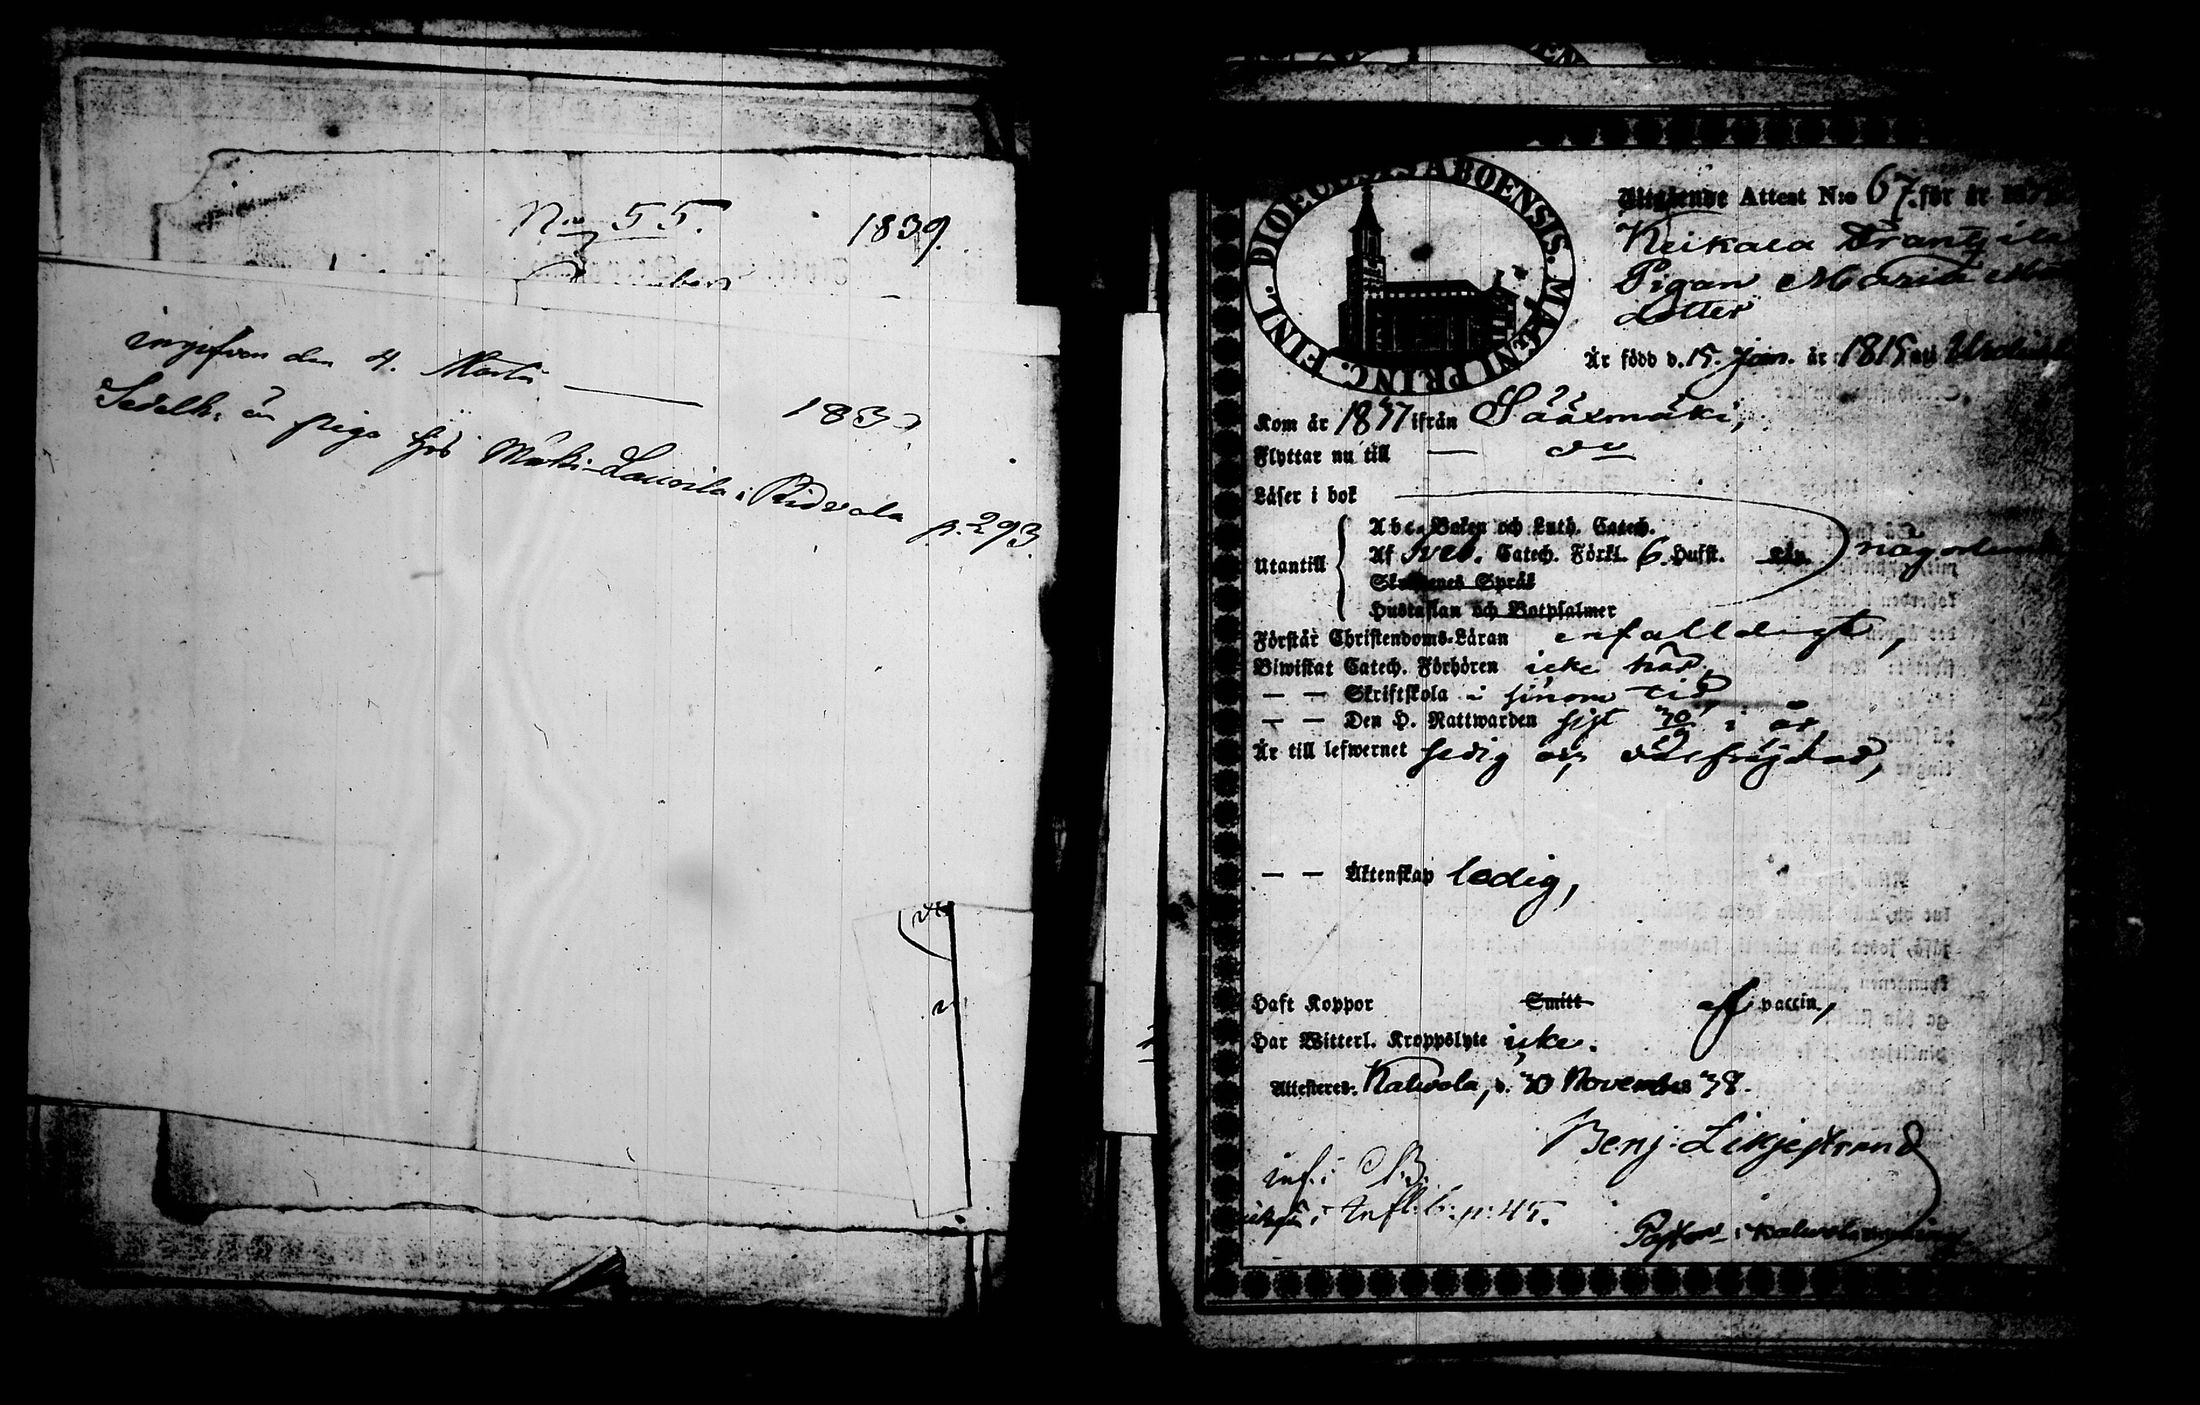 No 55. 1839.
ingifven den 4. Martii 183
Sedelh. är piga hos Mäki-Laurila i Ridvala p. 293.
DIOECESIS ABOENSIS. MAGNI PRINC. FINL.
Utgående Attest N:o 67. för år
Keikala Frantsila
Pigan Maria
dotter
Är född d. 15. Jan. år 1815 uti
Kom år 1837 ifrån Sääxmäki,
Flyttar nu till — do
Läser i bok
Abc-Boken och Luth. Catech.
Utantill Af Sveb. Catech. Förkl. 6. Hufst. någorlunda
Skriftenes Språk
Hustaflan och Botpsalmer
Förstår Christendoms-Läran enfalldigt,
Biwistat Catech. Förhören icke här,
— — Skriftskola i sinom tid
— — Den H. Nattwarden sist 30/9 i år,
Är till lefwernet sedig och välfrägdad,
— — Äktenskap ledig,
Haft Koppor Smitt af vaccin,
Har Witterl. Kroppslyte icke.
Attesteres. Kalvola, d. 30 November 38.
Benj. Liljestrand
Pastor i Kalvola
inf. i
Infl. b. p. 45.